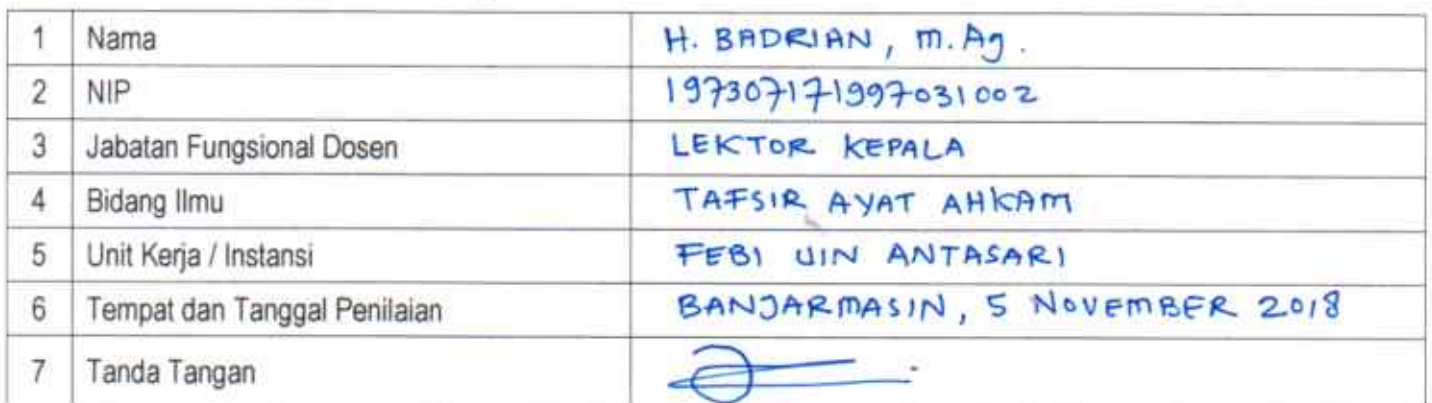 1 Nama H. BADRIAN, M.Ag.
2 NIP 197307171997031002
3 Jabatan Fungsional Dosen LEKTOR KEPALA
4 Bidang Ilmu TAFSIR AYAT AHKAM
5 Unit Kerja / Instansi FEBI UIN ANTASARI
6 Tempat dan Tanggal Penilaian BANJARMASIN, 5 NOVEMBER 2018
7 Tanda Tangan